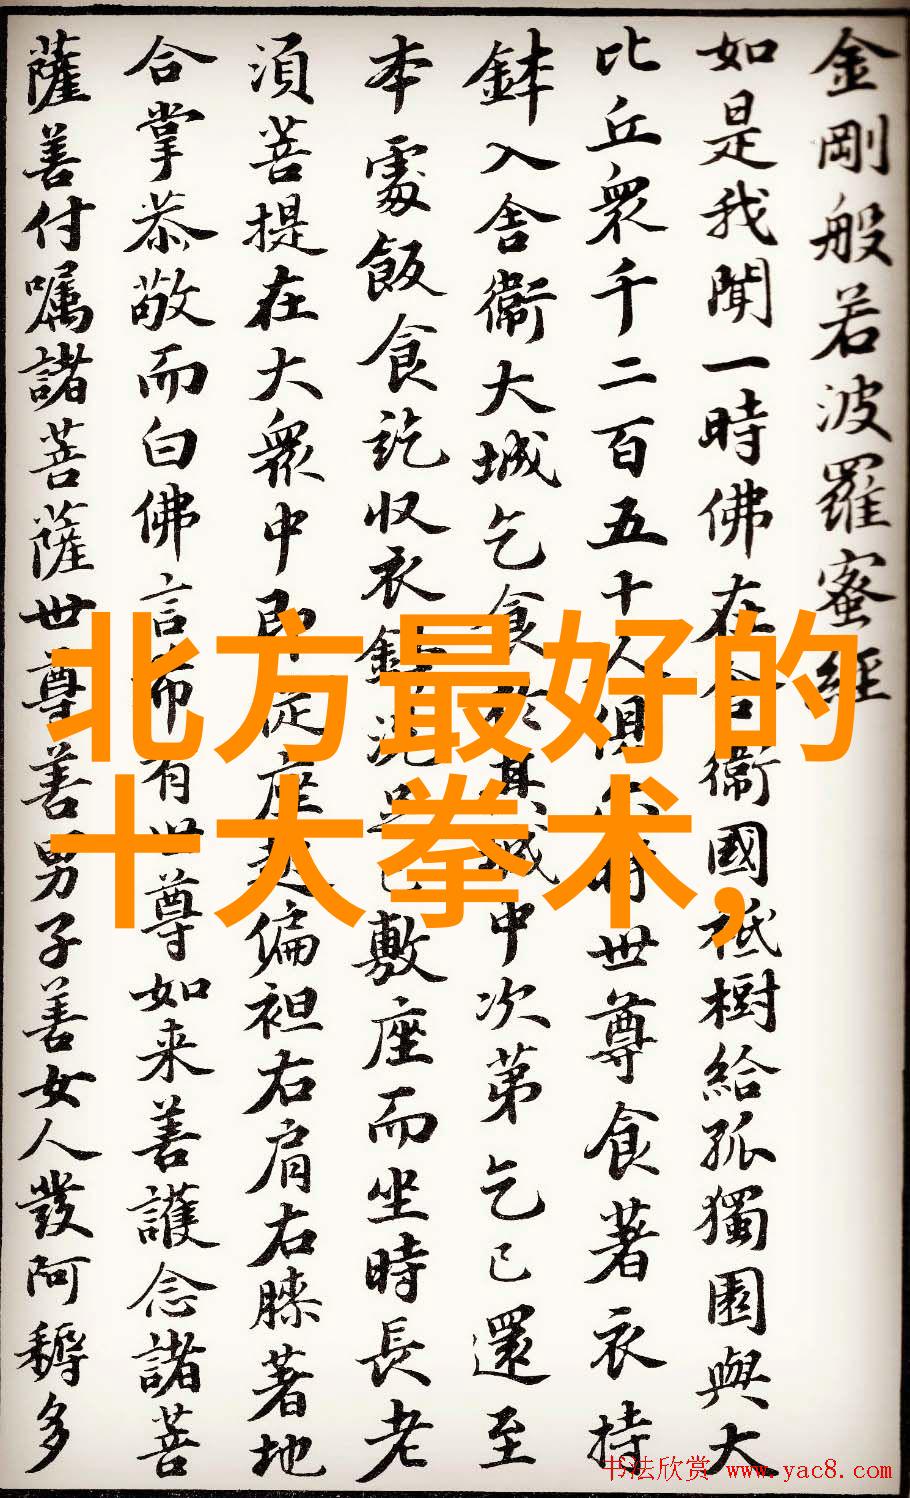 金剛般若波羅蜜經
如是我聞一時佛在舍衞國祇樹給孤獨園與大
比丘衆千二百五十人俱尒時世尊食著衣持
鉢入舍衞大城乞食於其城中次第乞已還至
本處飯食訖收衣鉢洗足已敷座而坐時長老
湏菩提在大衆中即從座起偏袒右肩右膝著地
合掌恭敬而白佛言希有世尊如来善護念諸菩
薩善付嘱諸菩薩世尊善男子善女人發阿耨多
北方最好的
十大拳术,
书法欣赏 www.yac8.com